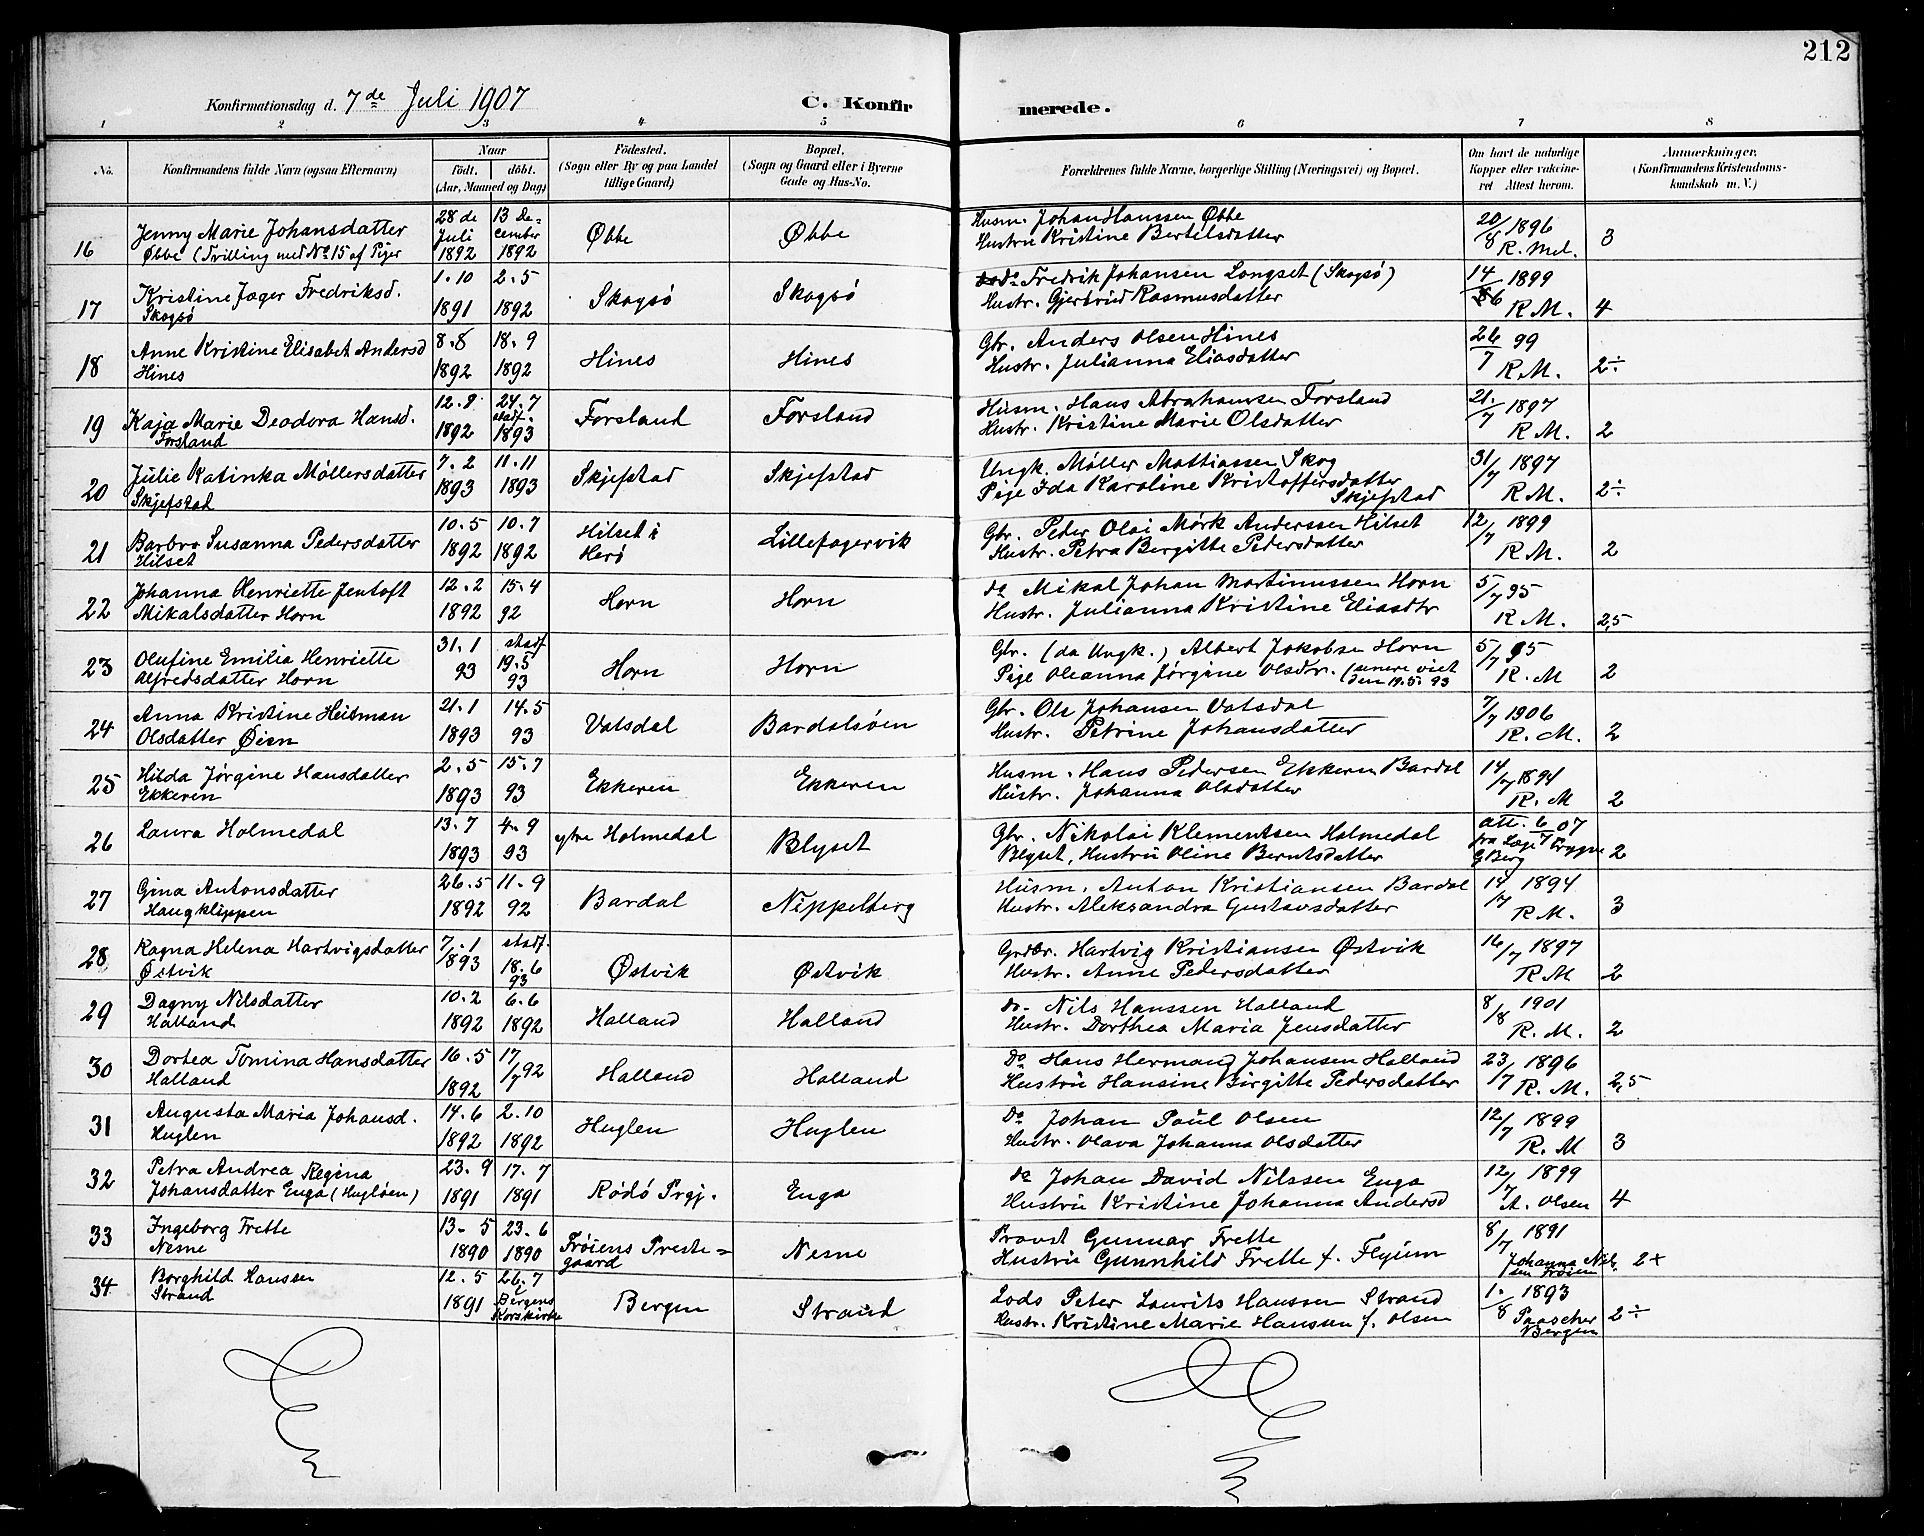 212
Konfirmationsdag d. 7de Juli 1907 C. Konfirmerede.
1 2 3 4 5 6 7 8
No. Konfirmandens fulde Navn (ogsaa Efternavn) Naar født. døbt. (Aar, Maaned og Dag) Fødested. (Sogn eller By og paa Landet tillige Gaard) Bopæl. (Sogn og Gaard eller i Byerne Gade og Hus-No.) Forældrenes fulde Navne, borgerlige Stilling (Næringsvei) og Bopæl. Om havt de naturlige Kopper eller vakcineret Attest herom. Anmærkninger. (Konfirmandens Kristendomskundskab m. V.)
16 Jenny Marie Johansdatter 28de Juli 1892 13 December 1892 Øbbe Øbbe Husm. Johan Hanssen Øbbe 20/8 1896
Øbbe (Tvilling med No 15 af Piger Hustru Kristine Bertelsdatter R. Med. 3
17 Kristine Jager Fredriksd. 1.10 1891 2.5 1892 Skogsø Skogsø do Fredrik Johansen Longset (Skogsø) 14/6 1899
Skogsø Hustr. Gjertrud Rasmusdatter R M. 4
18 Anne Kristine Elisabet Andersd 8.8 1892 18.9 1892 Hines Hines Gbr. Anders Olsen Hines 26/7 99
Hines Hustr. Julianna Eliasdatter R.M. 2÷
19 Kaja Marie Deodora Hansd. 12.9 1892 24.7 stadf. 1893 Forsland Forsland Husm. Hans Abrahamsen Forsland 21/7 1897
Forsland Hustr. Kristine Marie Olsdatter R M. 2
20 Julie Katinka Møllersdatter 7.2 1893 11.11 1893 Skjefstad Skjefstad Ungk. Møller Mattiassen Skog 31/7 1897
Skjefstad Pige Ida Karoline Kristoffersdatter Skjefstad R M. 2÷
21 Barbro Susanna Pedersdatter 10.5 1892 10.7 1892 Hilset i Herø Lillefagervik Gbr. Peder Olai Mørk Anderssen Hilset 12/7 1899
Hilset Hustr. Petra Bergitte Pedersdatter R M. 2
22 Johanna Henriette Jentoft 12.2 1892 15.4 92 Horn Horn do Mikal Johan Martinussen Horn 5/7 95
Mikalsdatter Horn Hustr. Julianna Kristine Eliasdtr R M. 2,5
23 Olufine Emilia Henriette 31.1 93 stadf 19.5 93 Horn Horn Gbr. (da Ungk.) Albert Jakobsen Horn 5/7 95
Alfredsdatter Horn Pige Oleanna Jørgine Olsdtr. (senere viet den 19.5.93 R. M 2
24 Anna Kristine Heitman 21.1 1893 14.5 93 Vatsdal Bardalsøen Gbr. Ole Johansen Vatsdal 7/7 1906
Olsdatter Øien Hustr. Petrine Johansdatter R. M. 2
25 Hilda Jørgine Hansdatter 2.5 1893 15.7 93 Ekkeren Ekkeren Husm. Hans Pedersen Ekkeren Bardal 14/7 1894
Ekkeren Hustr. Johanna Olsdatter R. M 2
26 Laura Holmedal 13.7 1893 4.9 93 ytre Holmedal Blyset Gbr. Nikolai Klementsen Holmedal att. 6/7 07
Blyset, Hustru Oline Berntsdatter fra Læge Trygve G Berg 2
27 Gina Antonsdatter 26.5 1892 11.9 92 Bardal Nippelberg Husm. Anton Kristiansen Bardal 14/7 1894
Haugklippen Hustr. Aleksandra Gustavsdatter R M. 3
28 Ragna Helena Hartvigsdatter 7.1 1893 stadf. 18.6 93 Østvik Østvik Grdbr. Hartvig Kristiansen Østvik 16/7 1897
Østvik Hustr. Anne Pedersdatter R M 2
29 Dagny Nilsdatter 10.2 1892 6.6 1892 Halland Halland do. Nils Hanssen Halland 8/8 1901
Halland Hustr. Dorthea Maria Jensdatter R. M. 2
30 Dortea Tomina Hansdatter 16.5 1892 17/7 92 Halland Halland Do Hans Hermann Johansen Halland 23/7 1896
Halland Hustru Hansine Birgitte Pedersdatter R. M. 2,5
31 Augusta Maria Johansd. 14.6 1892 2.10 1892 Huglen Huglen Do Johan Paul Olsen 12/7 1899
Huglen Hustr. Olava Johanna Olsdatter R. M 3
32 Petra Andrea Regina 23.9 1891 17.7 1891 Rødø Prgj. Enga do Johan David Nilssen Enga 12/7 1899
Johansdatter Enga (Hugløen) Hustru Kristine Johanna Andersd A. Olsen 4
33 Ingeborg Frette 13.5 1890 23.6 1890 Frøiens Prestegaard Nesne Provst Gunnar Frette 8/7 1891
Nesne Hustru Gunnhild Frette f. Flyum Johanna Nilsen Frøien 2+
34 Borghild Hanssen 12.5 1891 26.7 Bergens Korskirke Bergen Strand Lods Peter Laurits Hanssen Strand 1/8 1893
Strand Hustr. Kristine Marie Hanssen f. Olsen Paascher Bergen 2÷